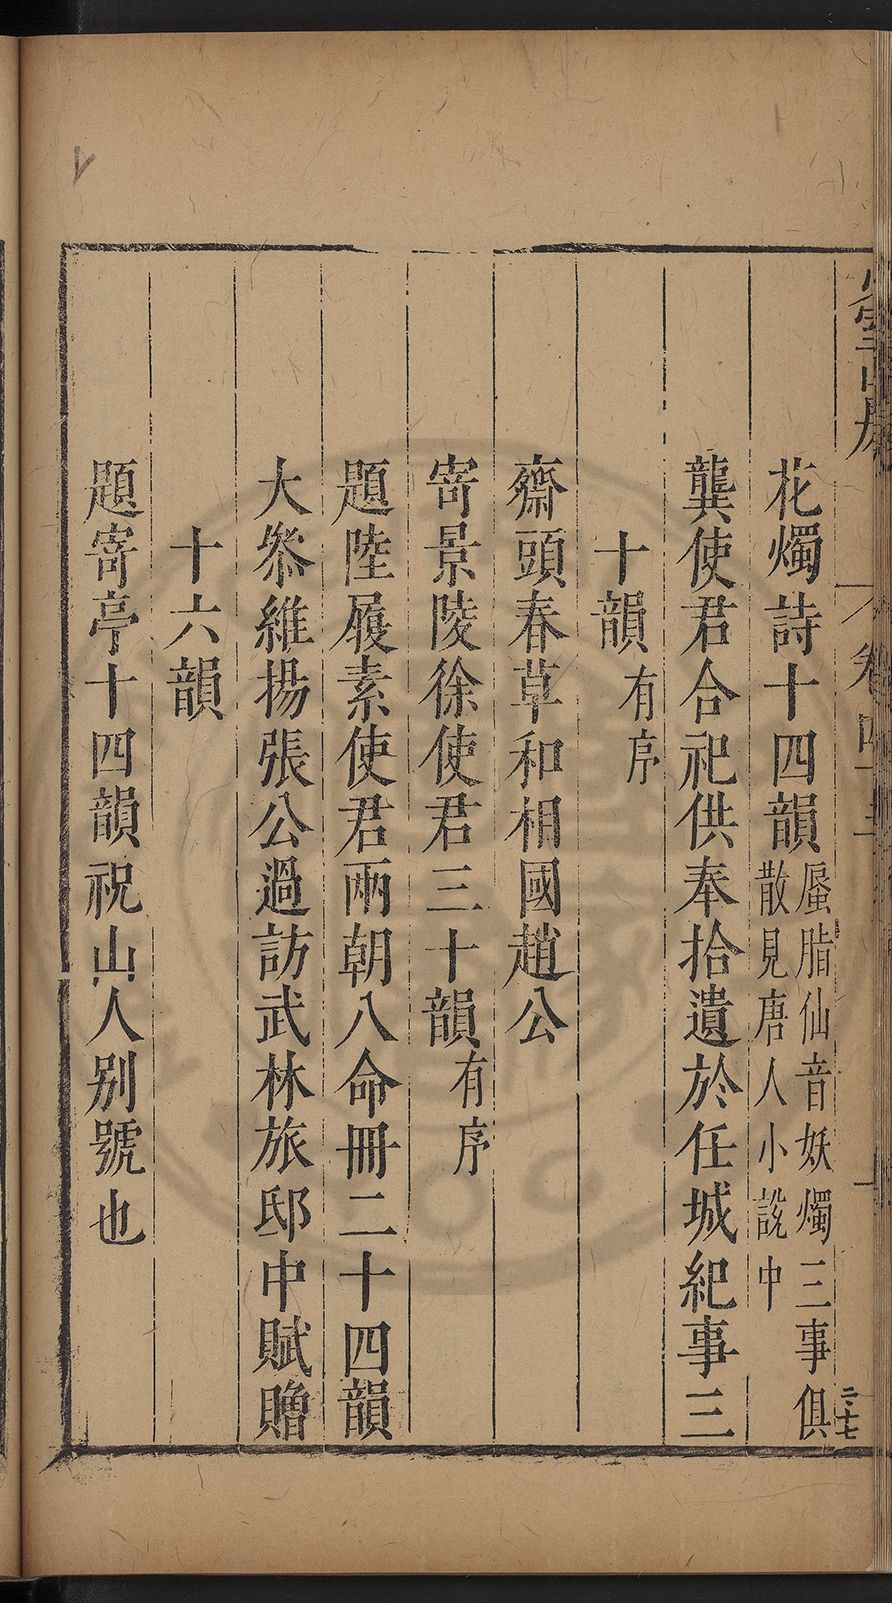 花燭詩十四韻蜃脂仙音妖燭三事俱
散見唐人小說中
龔使君合祀供奉拾遺於任城紀事三
十韻有序
齋頭春草和相國趙公
寄景陵徐使君三十韻有序
題陸履素使君兩朝八命冊二十四韻
大叅維揚張公過訪武林旅邸中賦贈
十六韻
題寄亭十四韻祝山人別號也
二·十七